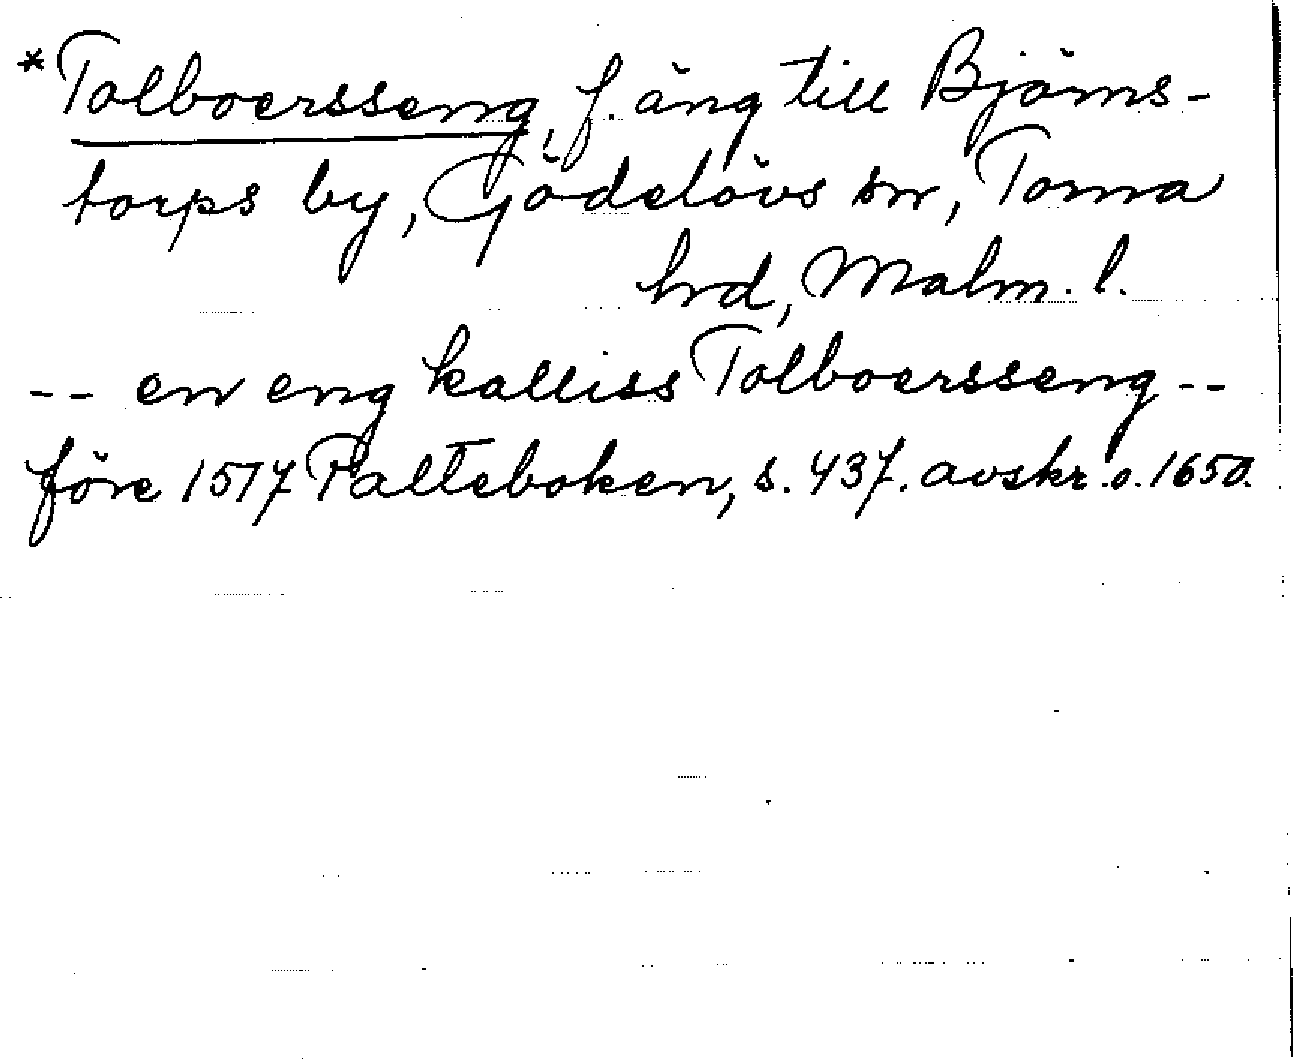 *Tolboersseng, f. äng till Björns-
torps by, Gödelövs sn, Torna
hrd, Malm. l.
-- en eng kalliss Tolboersseng --
före 1517 Palteboken, s. 437. avskr. o. 1650.